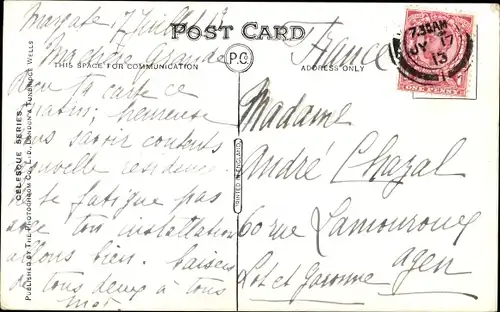 POST CARD
THIS SPACE FOR COMMUNICATION
P.C.
ADDRESS ONLY
CELESQUE SERIES
PUBLISHED BY THE PHOTOCHROM CO., LTD., LONDON & TUNBRIDGE WELLS
PRINTED IN ENGLAND
7.30 AM
JY 17
13
ONE PENNY
Margate 17 Juillet 13
Ma chère
Reçu ta carte ce
matin; heureuse
vous savoir contents
nouvelle residence
ne te fatigue pas
avec ton installation
allons bien. Baisers
tous deux à tous
France
Madame
André Chazal
60 rue Lamouroux
Agen
Lot et Garonne